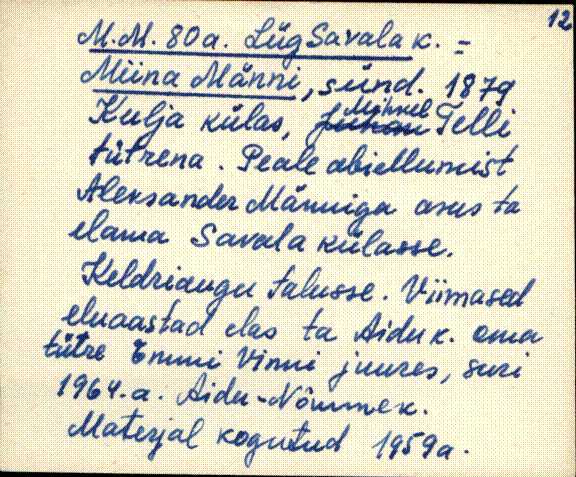 12
M.M. 80a. Lüg Savala k. =
Miina Männi, sünd. 1879
Kulja külas, Juhan Mihkel Telli
tütrena. Peale abiellumist
Aleksander Männiga asus ta
elama Savala külasse.
Keldriaugu talusse. Viimased
eluaastad elas ta Aidu k. oma
tütre Emmi Vinni juures, suri
1964.a. Aidu-Nõmme k.
Materjal kogutud 1959a.